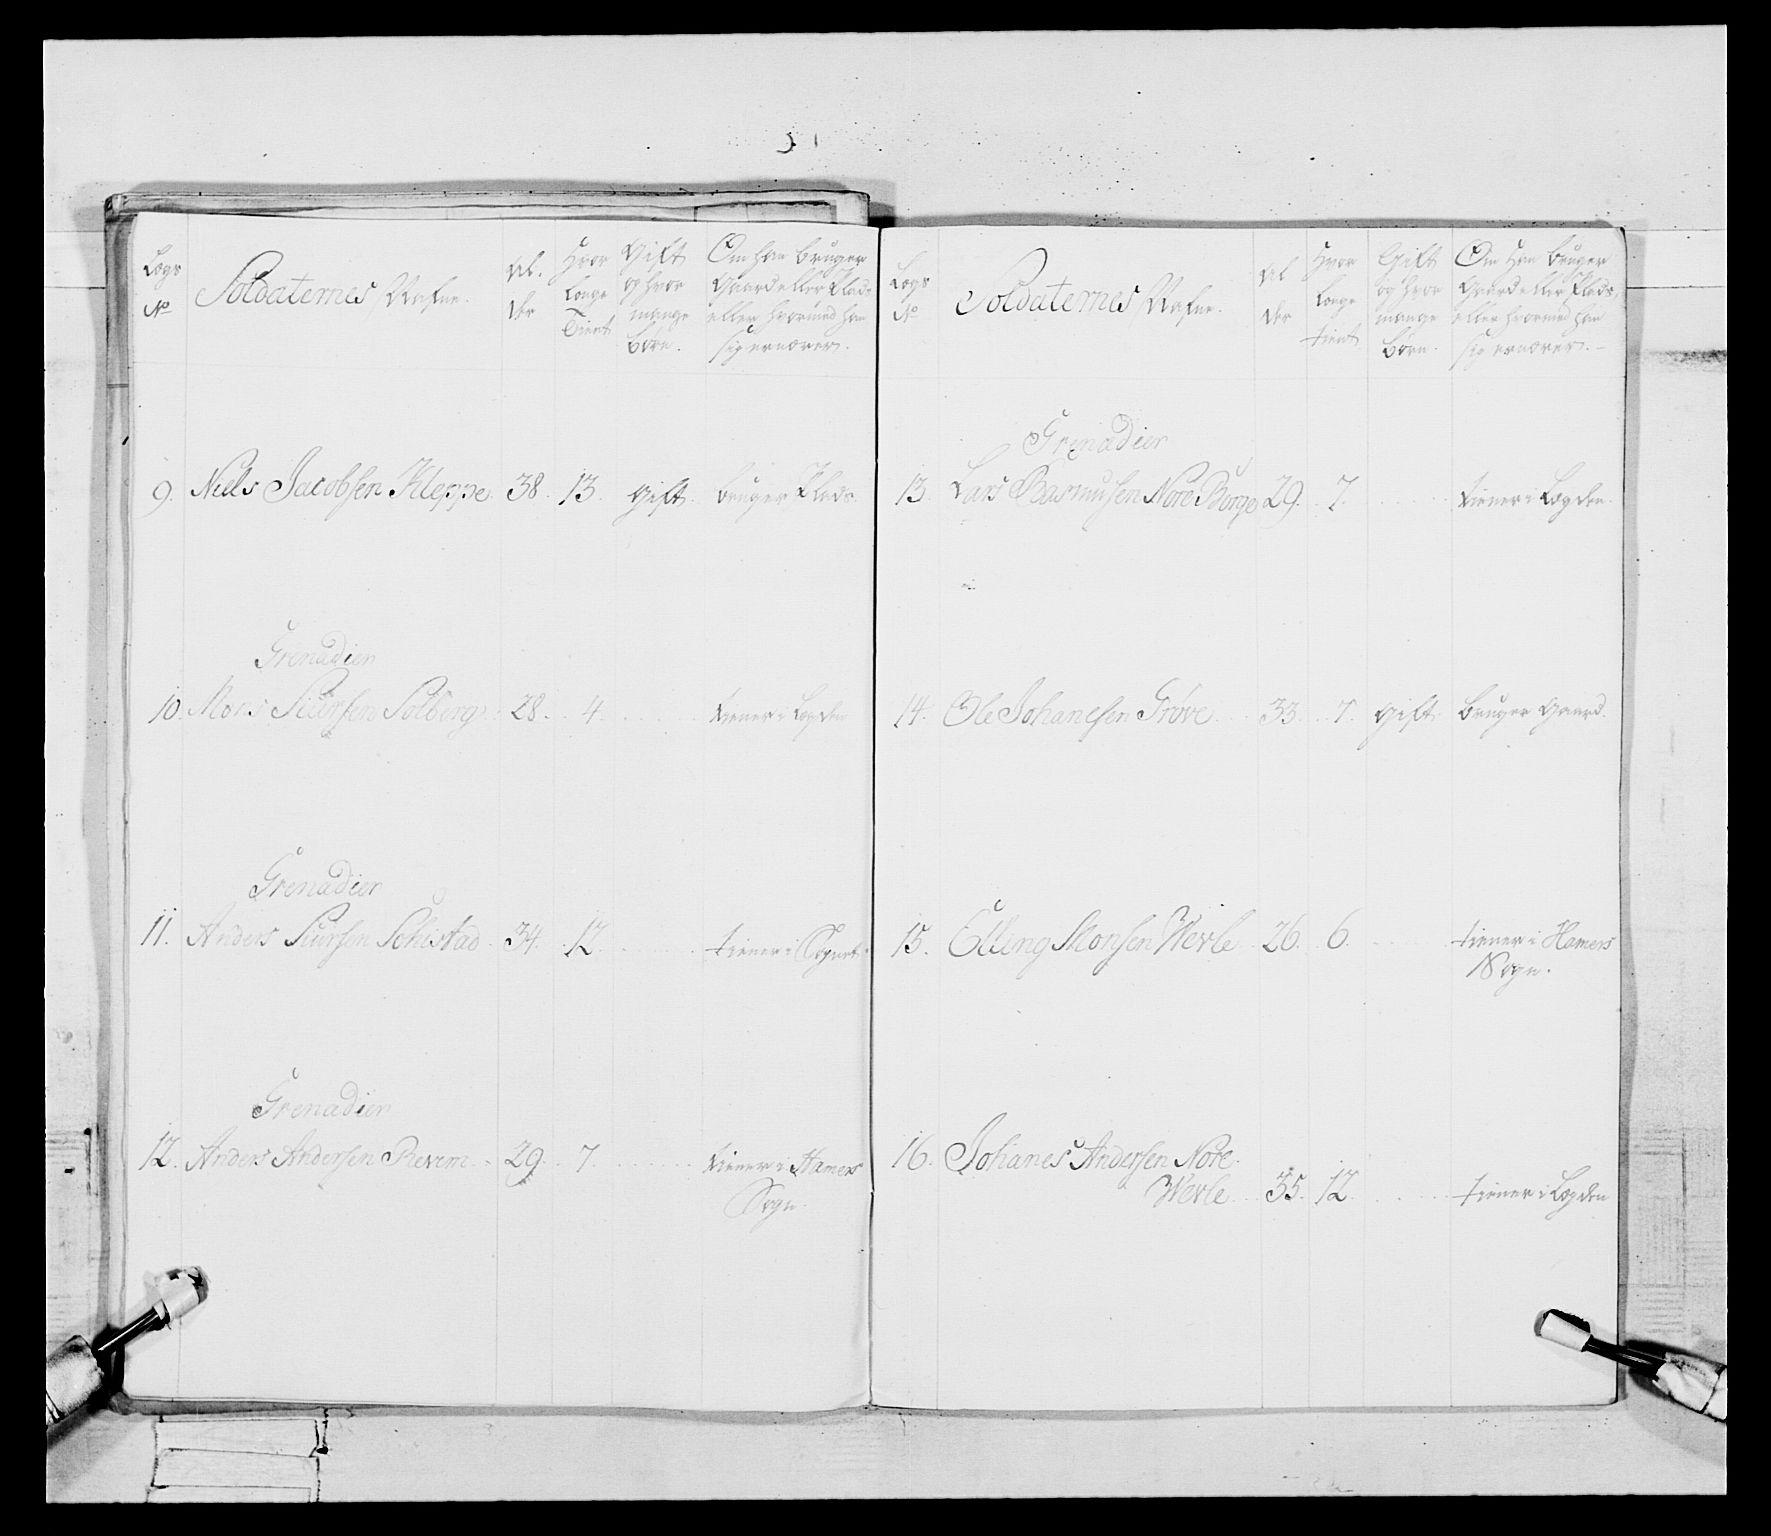 Legs No | Soldaternes Nafne. | Al. der | Hvor Lenge Tient | Gift og hvor mange Børn. | Om han bruger Gaard eller Plads eller hvormed han sig ernærer.
9. Niels Jacobsen Kleppe. 38. 13. Gift. bruger Plads.
Grenadier
10. Mons Siursen Solberg 28. 4. tiener i Legden
Grenadier
11. Anders Siursen 34. 12. tiener i Sognet.
Grenadier
12. Anders Andersen Revem 29. 7. tiener i Hamers
Sogn.
Legs No | Soldaternes Nafne. | Al der | Hvor Lenge tient | Gift og hvor mange Børn. | Om han bruger Gaard eller Plads, eller hvormed han sig ernærer.
Grenadier
13. Lars Rasmusen Nore Borge 29. 7. tiener i Legden.
14. Ole Johanesen Grøve 33. 7. Gift bruger Gaard.
15. Elling Monsen Werle 26. 6. tiener i Hamers
Sogn.
16. Johanes Andersen Nore
Werle 35. 12. tiener i Legden